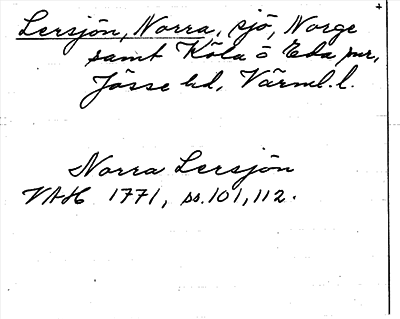 Lersjön, Norra, sjö, Norge
samt Köla o Eda snr,
Jösse hd, Värml. l.
Norra Lersjön
VAH 1771, ss. 101, 112.